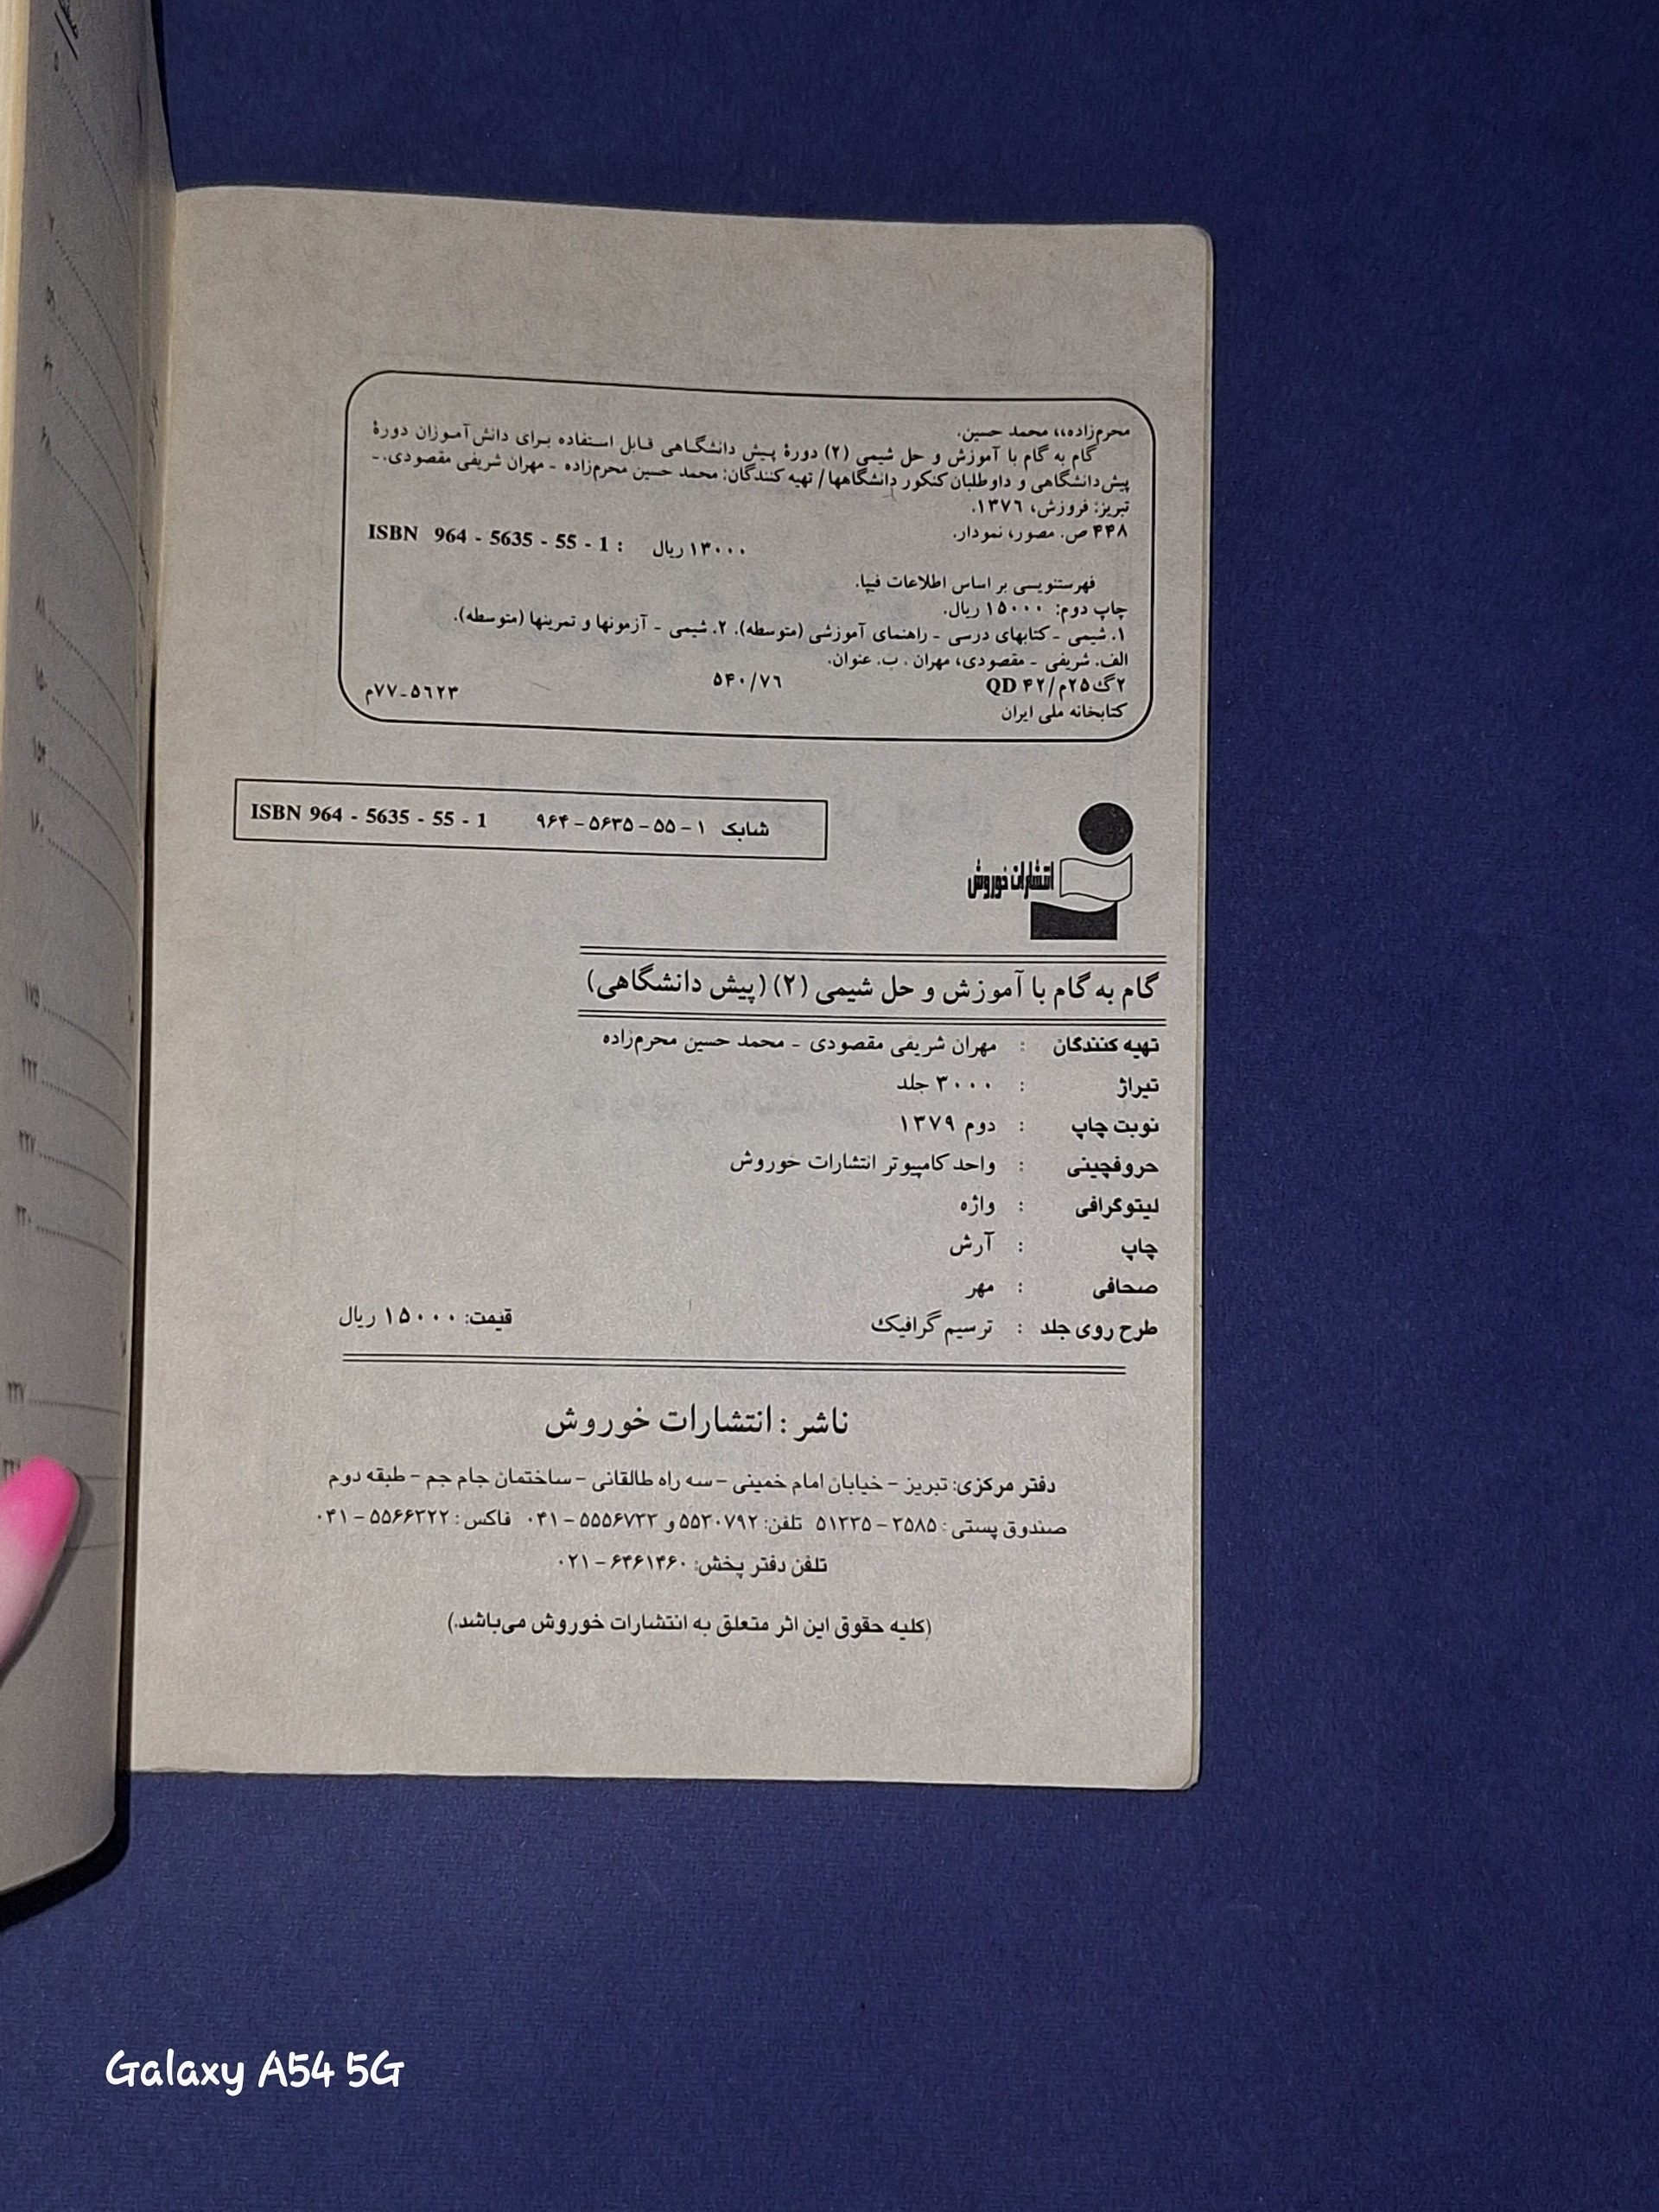 محرم‌زاده،، محمد حسین.
گام به گام با آموزش و حل شیمی (۲) دورهٔ پیش دانشگاهی قابل استفاده برای دانش‌آموزان دورهٔ
پیش‌دانشگاهی و داوطلبان کنکور دانشگاهها / تهیه کنندگان: محمد حسین محرم‌زاده - مهران شریفی مقصودی. -
تبریز: فروزش، ۱۳۷۶.
۴۴۸ ص. مصور، نمودار.
۱۳۰۰۰ ریال : ISBN 964 - 5635 - 55 - 1
فهرستنویسی بر اساس اطلاعات فیپا.
چاپ دوم: ۱۵۰۰۰ ریال.
۱. شیمی - کتابهای درسی - راهنمای آموزشی (متوسطه). ۲. شیمی - آزمونها و تمرینها (متوسطه).
الف. شریفی - مقصودی، مهران . ب. عنوان.
۲گ۲۵م/۴۲ QD ۵۴۰/۷۶ ۵۶۲۳-۷۷م
کتابخانه ملی ایران
شابک ۱ - ۵۵ - ۵۶۳۵ - ۹۶۴ ISBN 964 - 5635 - 55 - 1
انتشارات خوروش
گام به گام با آموزش و حل شیمی (۲) (پیش دانشگاهی)
تهیه کنندگان : مهران شریفی مقصودی - محمد حسین محرم‌زاده
تیراژ : ۳۰۰۰ جلد
نوبت چاپ : دوم ۱۳۷۹
حروفچینی : واحد کامپیوتر انتشارات خوروش
لیتوگرافی : واژه
چاپ : آرش
صحافی : مهر
طرح روی جلد : ترسیم گرافیک قیمت: ۱۵۰۰۰ ریال
ناشر : انتشارات خوروش
دفتر مرکزی: تبریز - خیابان امام خمینی - سه راه طالقانی - ساختمان جام جم - طبقه دوم
صندوق پستی : ۳۵۸۵ - ۵۱۳۳۵ تلفن: ۵۵۳۰۷۹۲ و ۵۵۵۶۷۳۳ - ۰۴۱ فاکس : ۵۵۶۶۳۲۲ - ۰۴۱
تلفن دفتر پخش: ۶۴۶۱۴۶۰ - ۰۲۱
(کلیه حقوق این اثر متعلق به انتشارات خوروش می‌باشد.)
Galaxy A54 5G